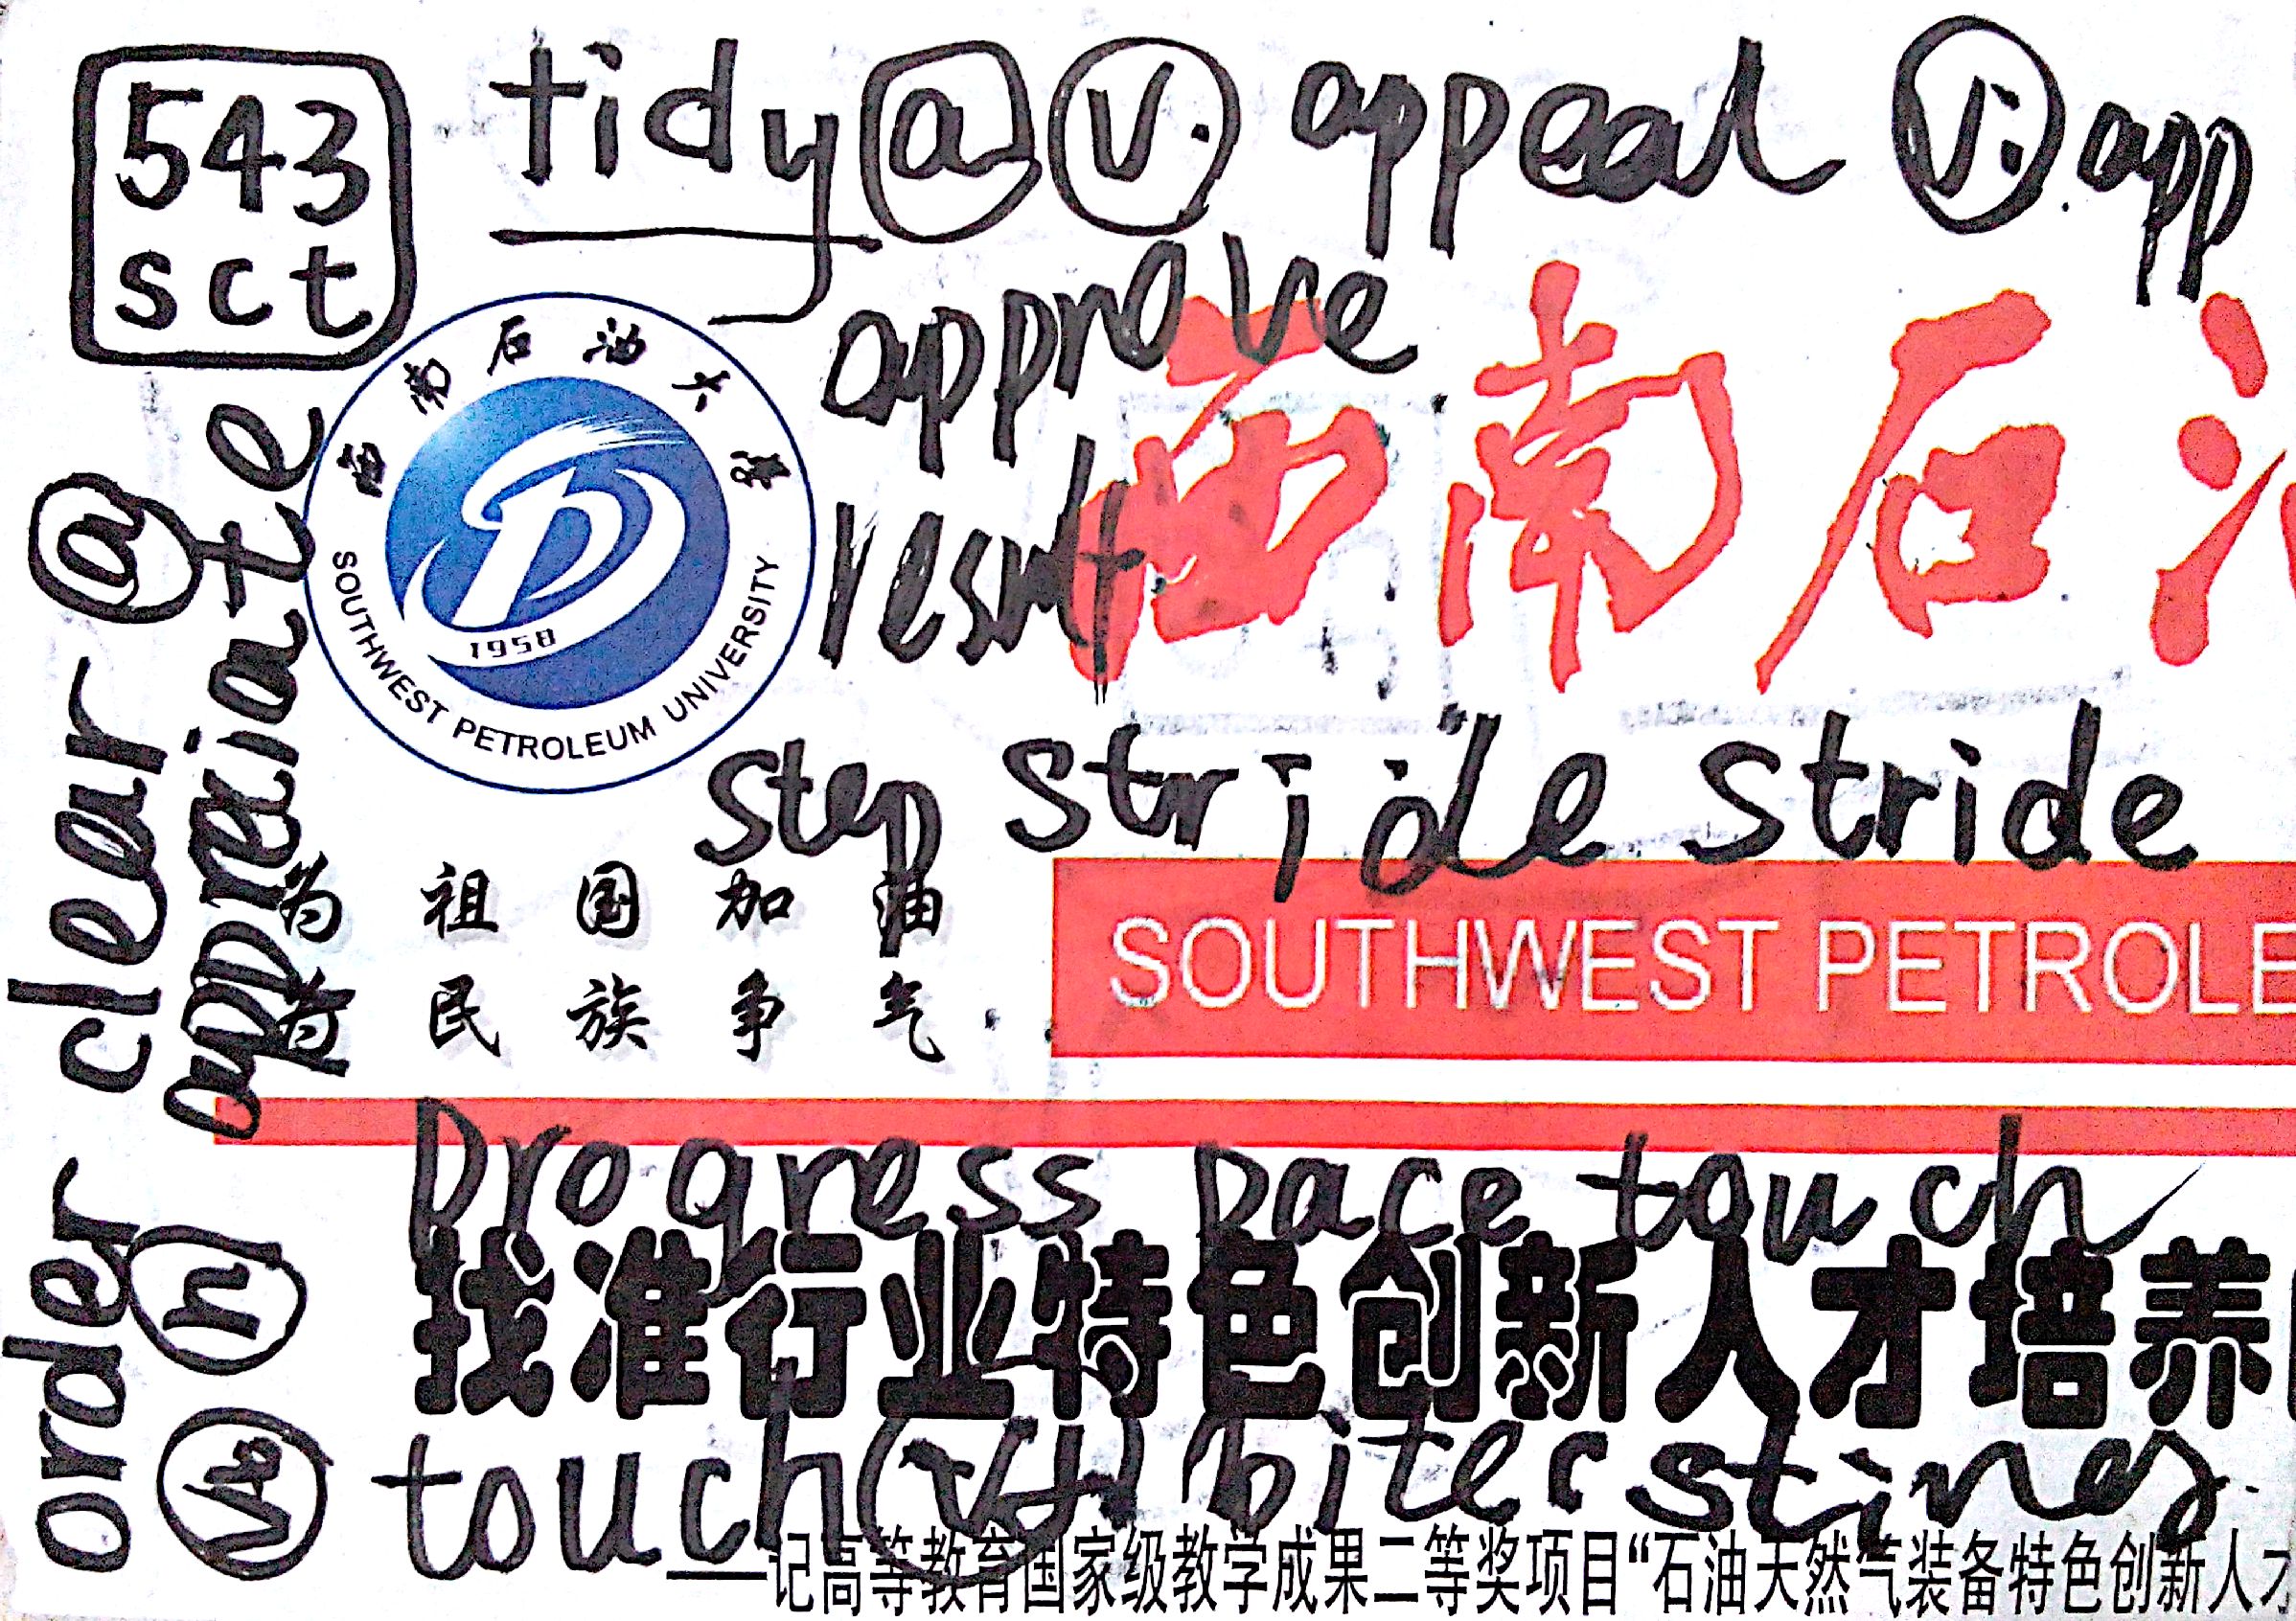 543
sct
tidy a v. appeal v. app
approve
result
西南石油大学
1958
SOUTHWEST PETROLEUM UNIVERSITY
西南石
step stride stride
为祖国加油
为民族争气
SOUTHWEST PETROLE
clear a
appreciate
order n
progress pace touch
找准行业特色创新人才培养
touch bite sting
——记高等教育国家级教学成果二等奖项目“石油天然气装备特色创新人才